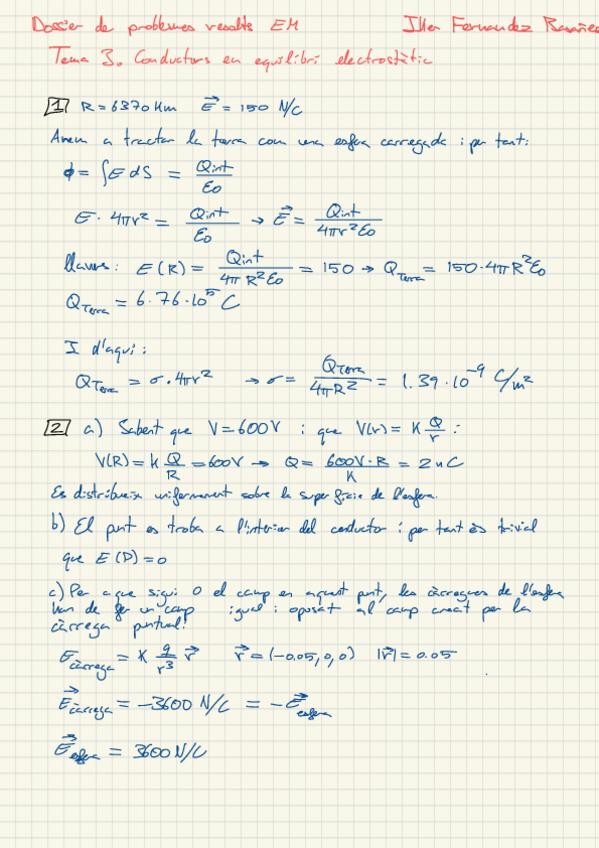 Dossier de problemes resolts EM Iker Fernandez
Tema 3. Conductors en equilibri electrostàtic
1 R = 6370 Km E⃗ = 150 N/C
Anem a tractar la terra com una esfera carregada i per tant:
ϕ = ∫E dS = Qint/ε0
E · 4πr² = Qint/ε0 → E⃗ = Qint/4πr²ε0
Llavors: E(R) = Qint/4πR²ε0 = 150 → QTerra = 150·4πR²ε0
QTerra = 6.76·10⁵ C
I d'aquí:
QTerra = σ·4πr² → σ = QTerra/4πR² = 1.39·10⁻⁹ C/m²
2 a) Sabent que V=600V i que V(r) = K Q/r :
V(R) = K Q/R = 600V → Q = 600V·R/K = 2nC
Es distribueix uniformement sobre la superficie de l'esfera.
b) El punt es troba a l'interior del conductor i per tant és trivial
que E(D) = 0
c) Per a que sigui 0 el camp en aquest punt, les càrregues de l'esfera
han de fer un camp igual i oposat al camp creat per la
càrrega puntual:
Ecàrrega = K q/r³ r⃗ r⃗ = (-0.05,0,0) |r⃗| = 0.05
E⃗càrrega = -3600 N/C = -E⃗esfera
E⃗esfera = 3600 N/C